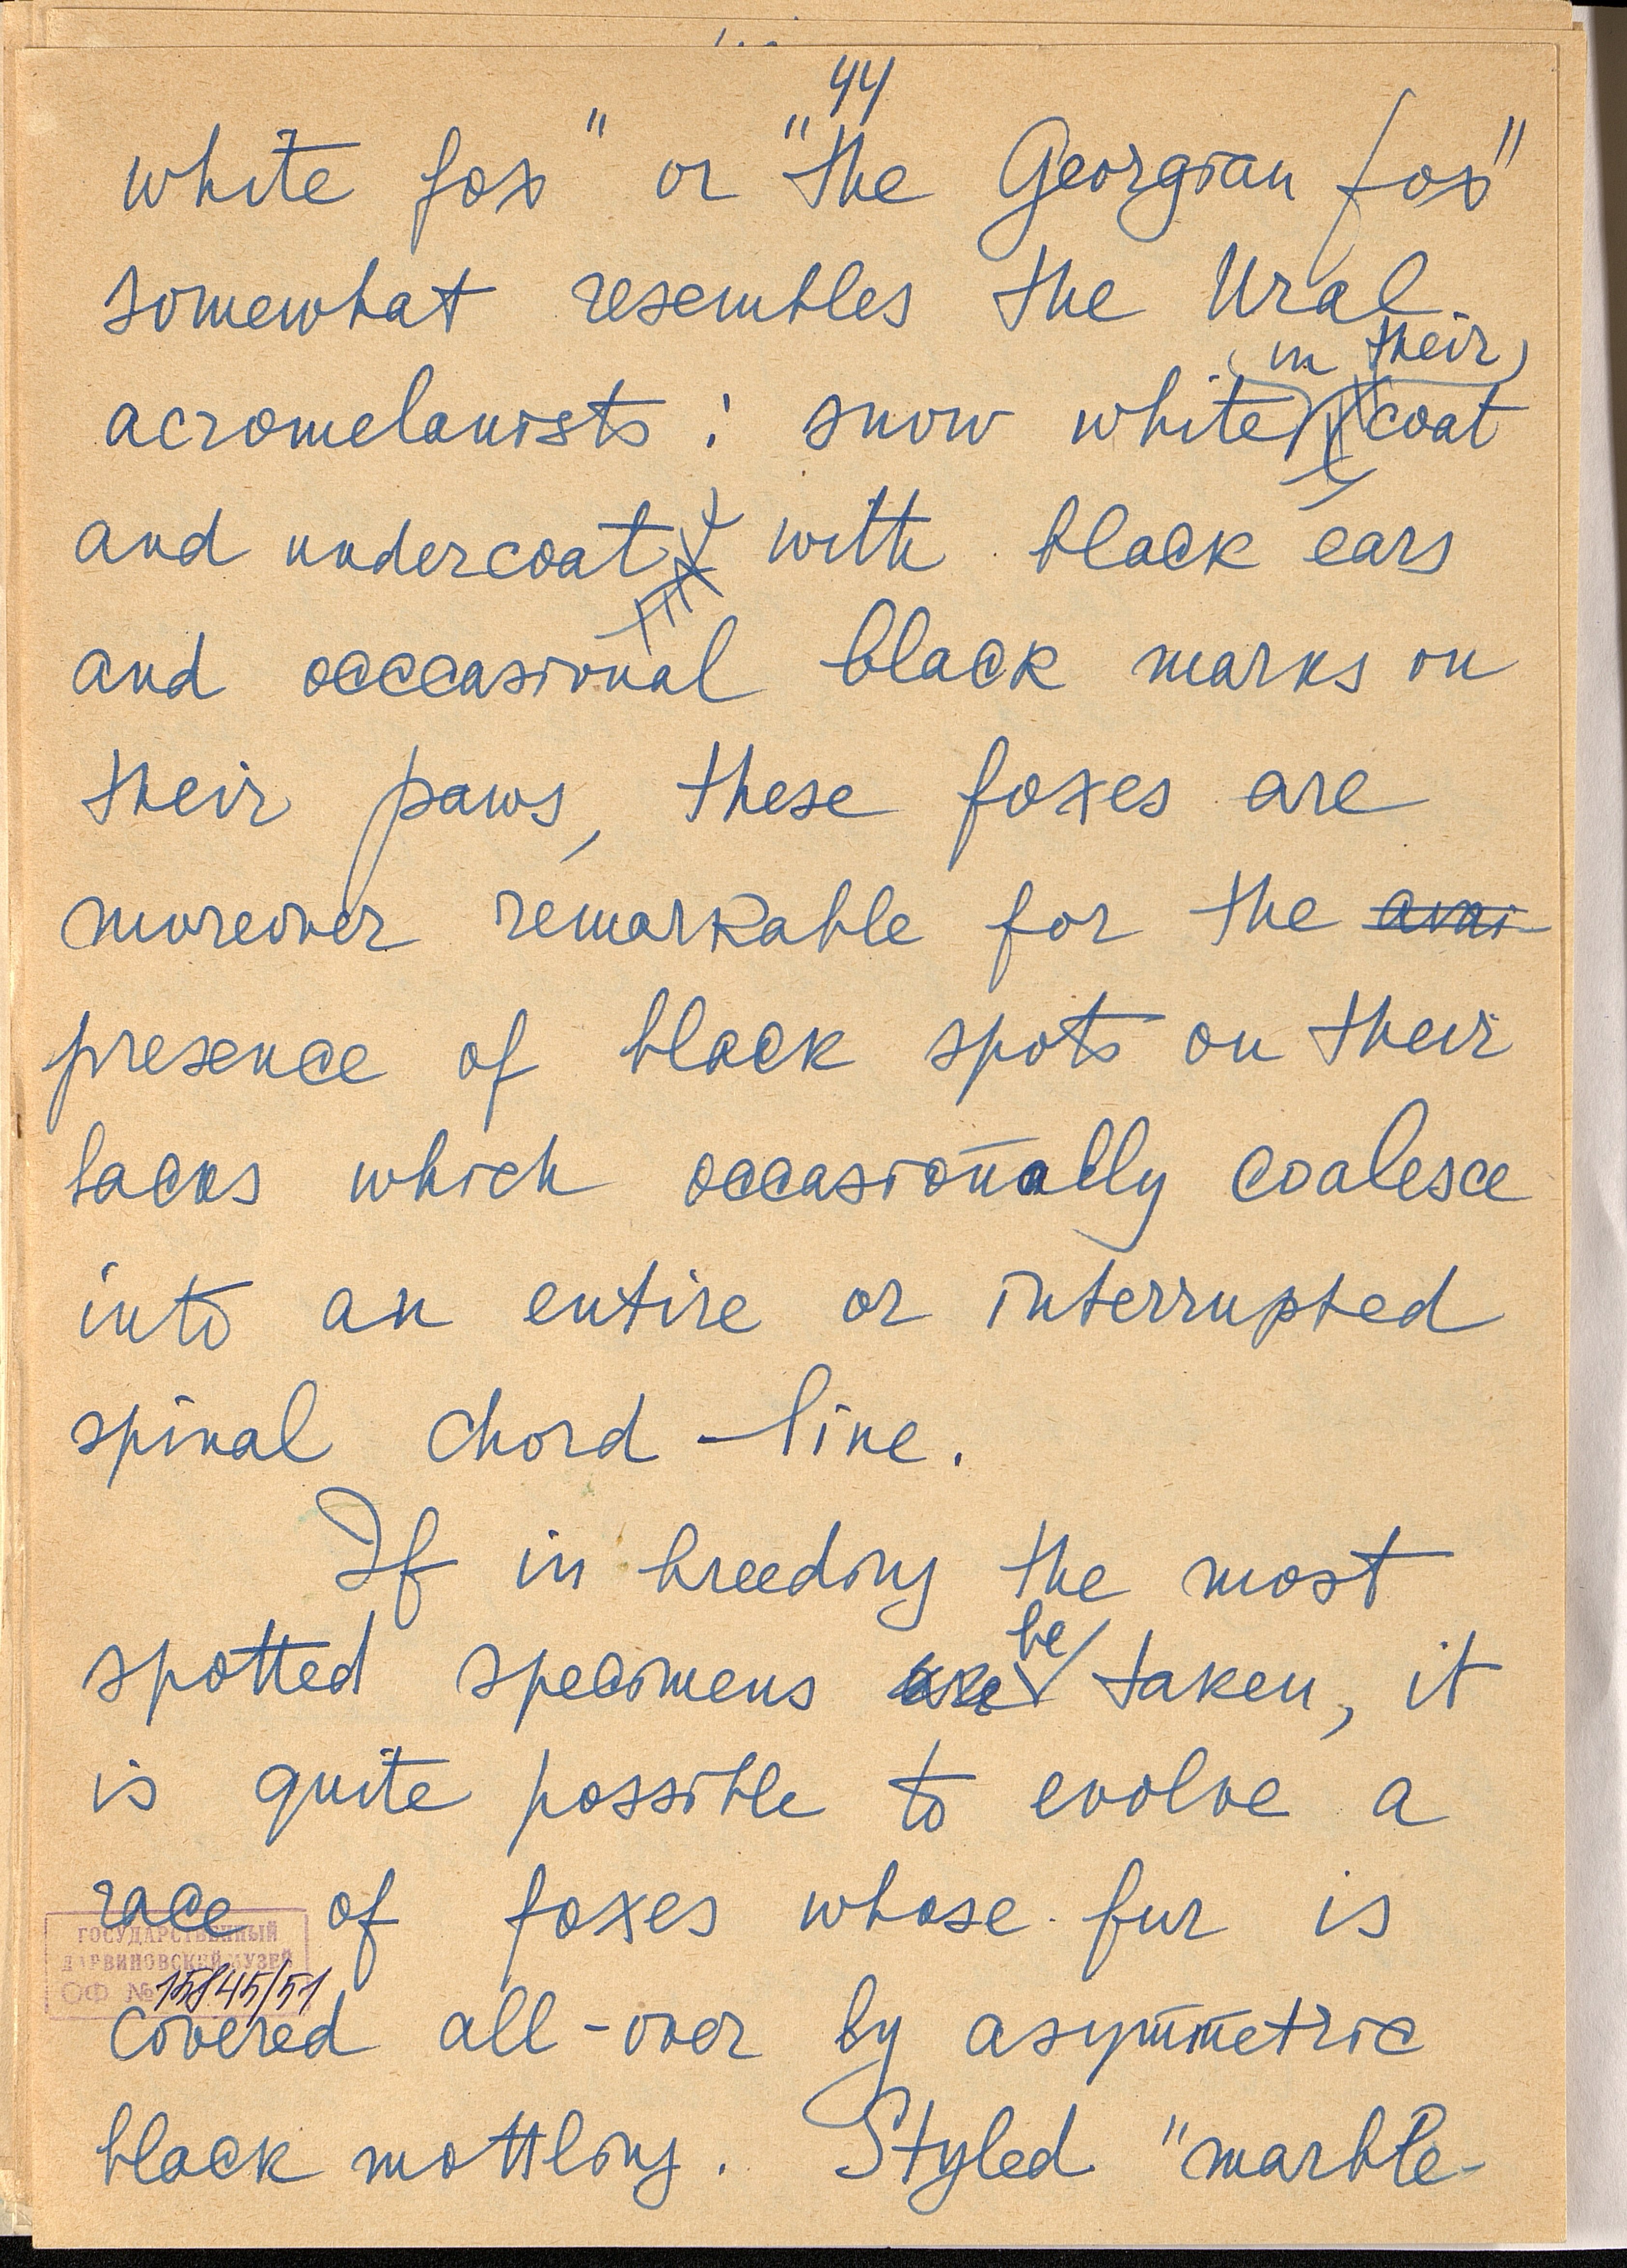 44
white fox" or "the Georgian fox"
somewhat resembles the Ural
in their
acromelanists: snow white coat
and undercoat with black ears
and occcasional black marks on
their paws, these foxes are
moreover remarkable for the
presence of black spots on their
backs which occasionally coalesce
into an entire or interrupted
spinal chord-line.
If in breeding the most
be
spotted specimens are taken, it
is quite possible to evolve a
race of foxes whose fur is
ГОСУДАРСТВЕННЫЙ
ДАРВИНОВСКИЙ МУЗЕЙ
ОФ № 15845/51
covered all-over by asymmetric
black mottling. Styled "marble-